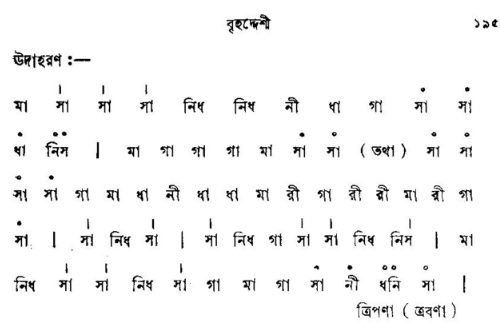 বৃহদ্দেশী ১৯৫
উদাহরণ :—
মা সা সা সা নিধ নিধ নী ধা গা সা সা
ধা নিস | মা গা গা গা মা সা সা ( তথা ) সা সা
সা সা গা মা ধা নী ধা ধা মা রী গা রী রী মা রী গা
সা | সা নিধ সা | সা নিধ গা সা সা নিধ নিস | মা
নিধ সা সা নিধ সা গা মা গা সা নী ধনি সা |
ত্রিপণা ( ত্রবণা )